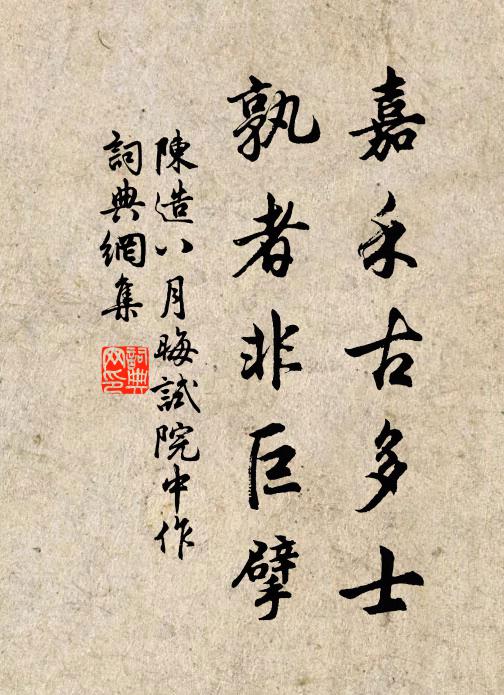 嘉禾古多士
孰者非巨擘
陳造八月晦試院中作
詞典網集
詞典網印